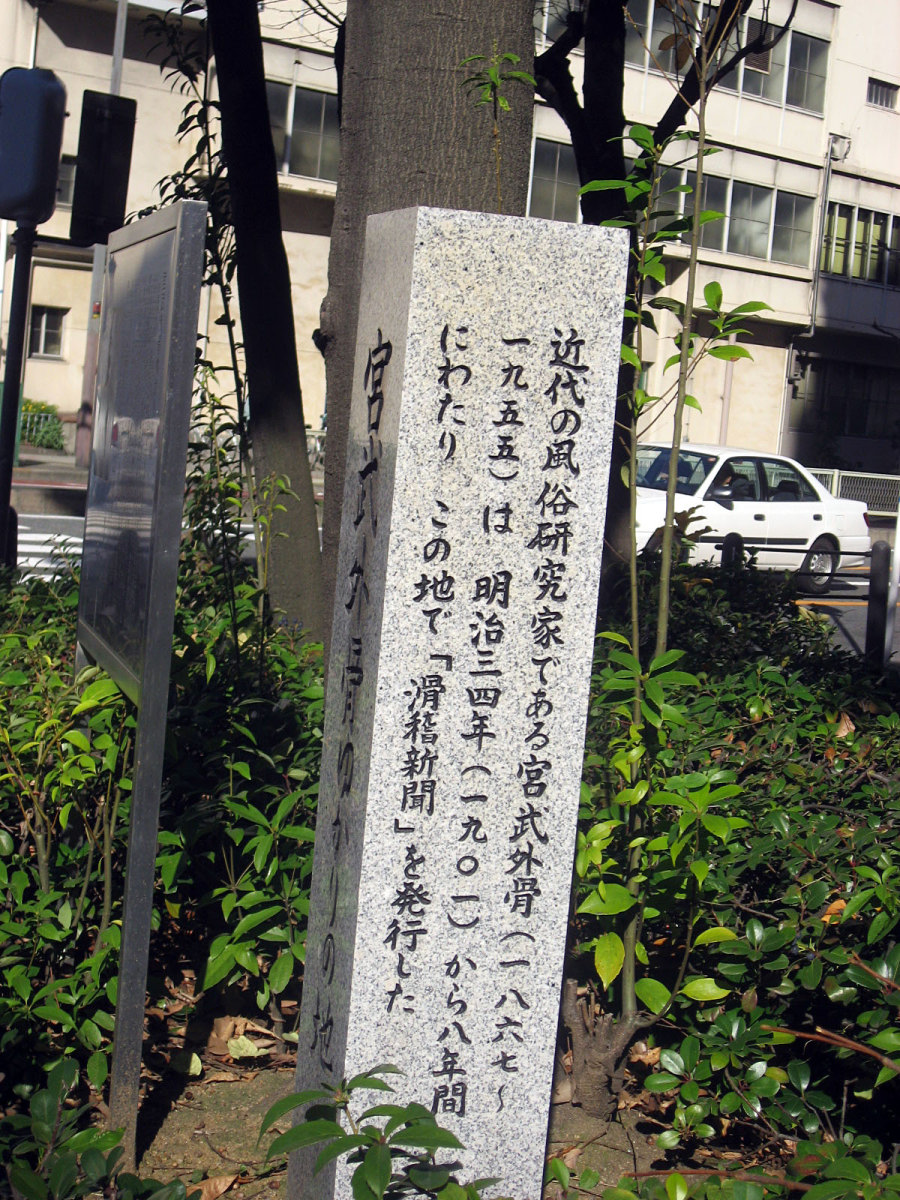 近代の風俗研究家である宮武外骨(一八六七〜
一九五五)は 明治三四年(一九〇一)から八年間
にわたり この地で「滑稽新聞」を発行した
宮武外骨ゆかりの地